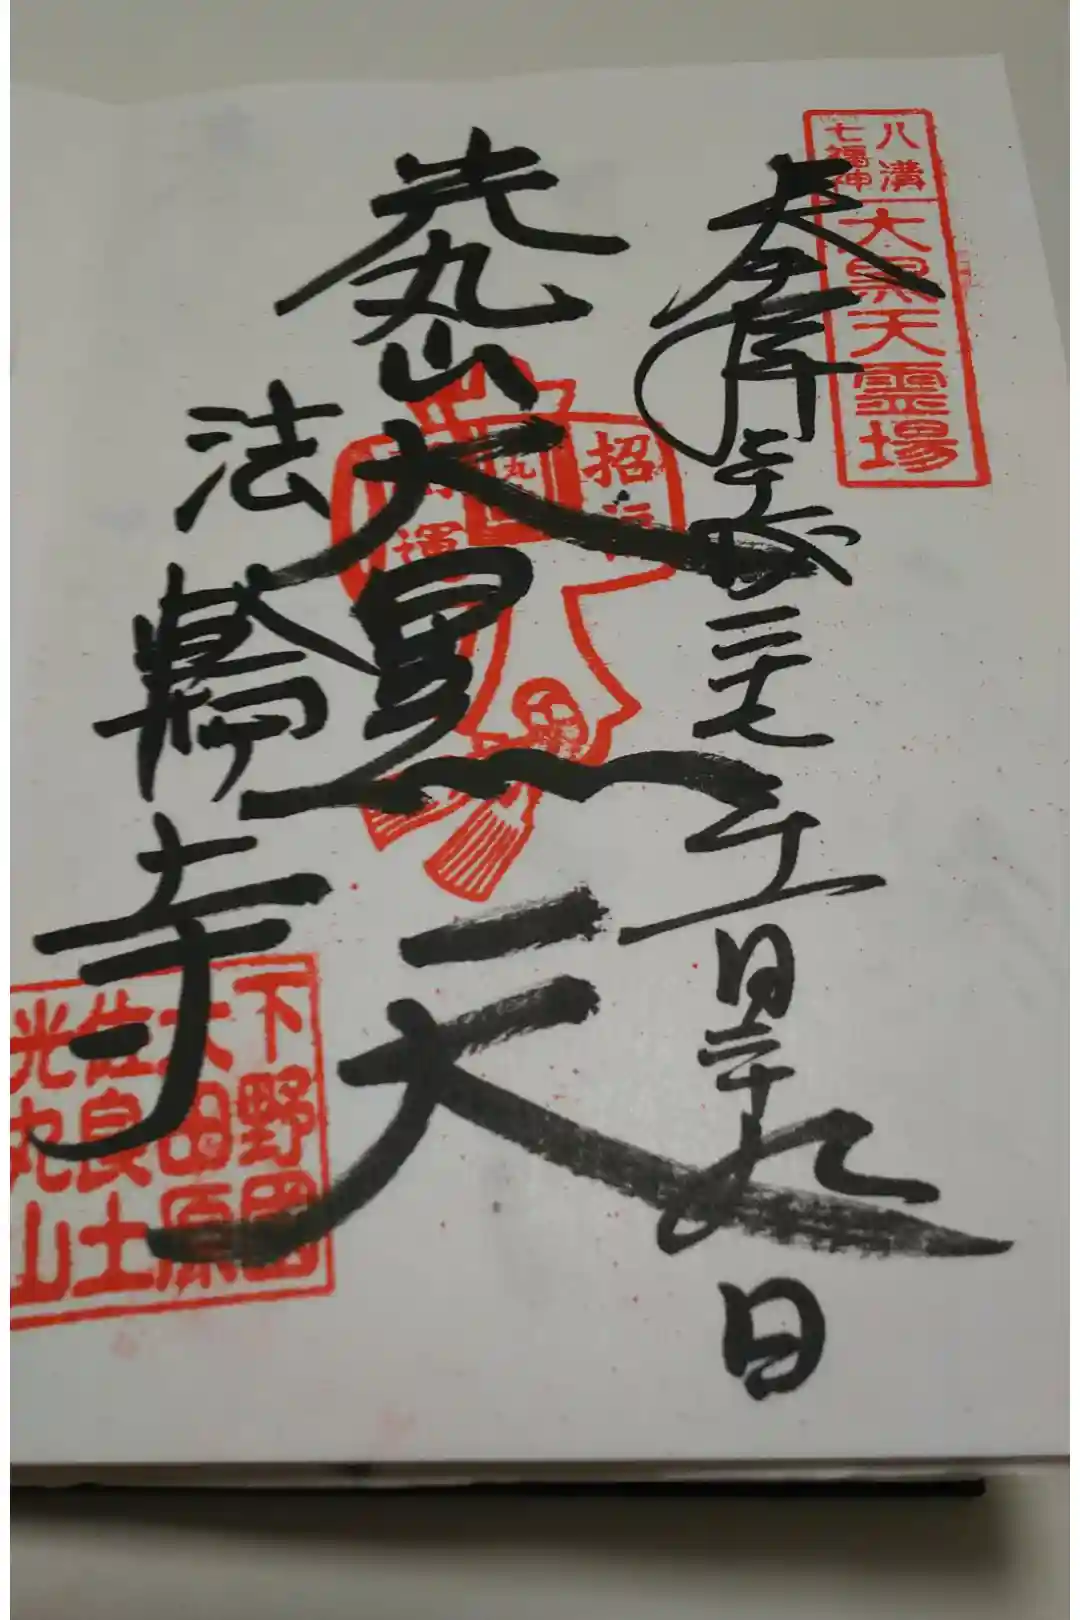 八溝
七福神
大黒天霊場
奉拝
平成二七年
二十九日
光丸山
大黒天
招福
開運
法輪寺
下野国
大田原
佐良土
光丸山